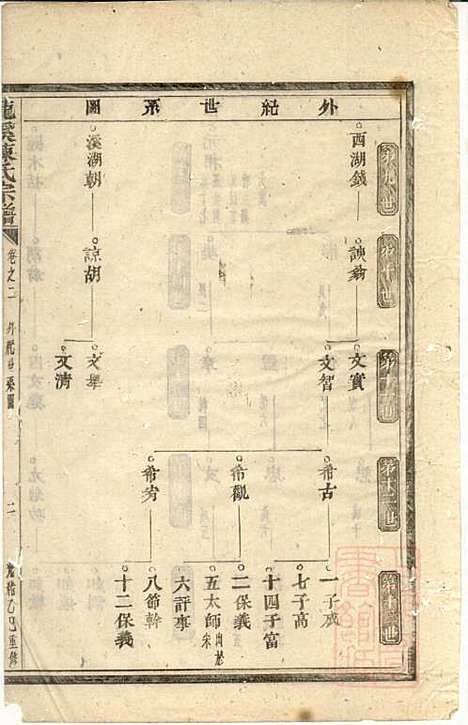 外紀世系圖
第九世
第十世
第十一世
第十二世
第十三世
西湖錢
諛翁
文實
文智
希古
希觀
希旁
一子戒
七子高
十四子富
二保義
五太師
六評事
八節幹
十二保義
溪湖朝
諒胡
文舉
文清
龍溪陳氏宗譜
卷之二
外紀世系圖
二
光緒乙巳重修